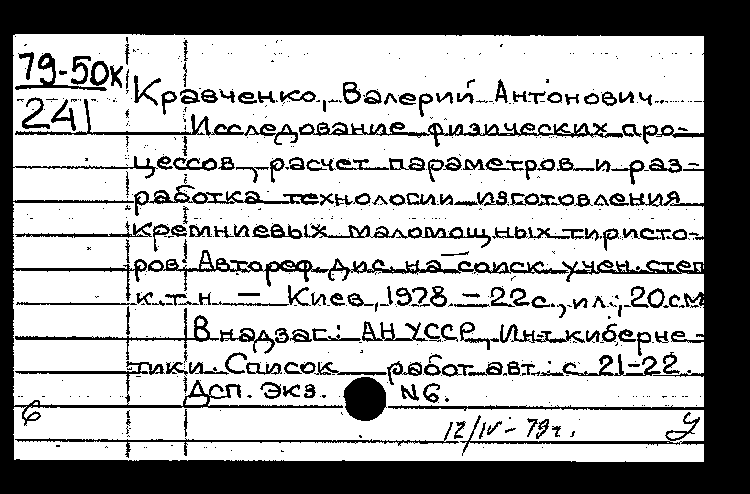 79-50к
241
Кравченко, Валерий Антонович
Исследование физических про-
цессов, расчет параметров и раз-
работка технологии изготовления
кремниевых маломощных тиристо-
ров: Автореф. дис. на соиск. учен. степ
к.т.н. — Киев, 1978 — 22с., ил.; 20см
В надзаг.: АН УССР, Ин-т киберне-
тики. Список работ авт.: с. 21-22.
Дсп. Экз. N6.
6
12/IV - 79г. У